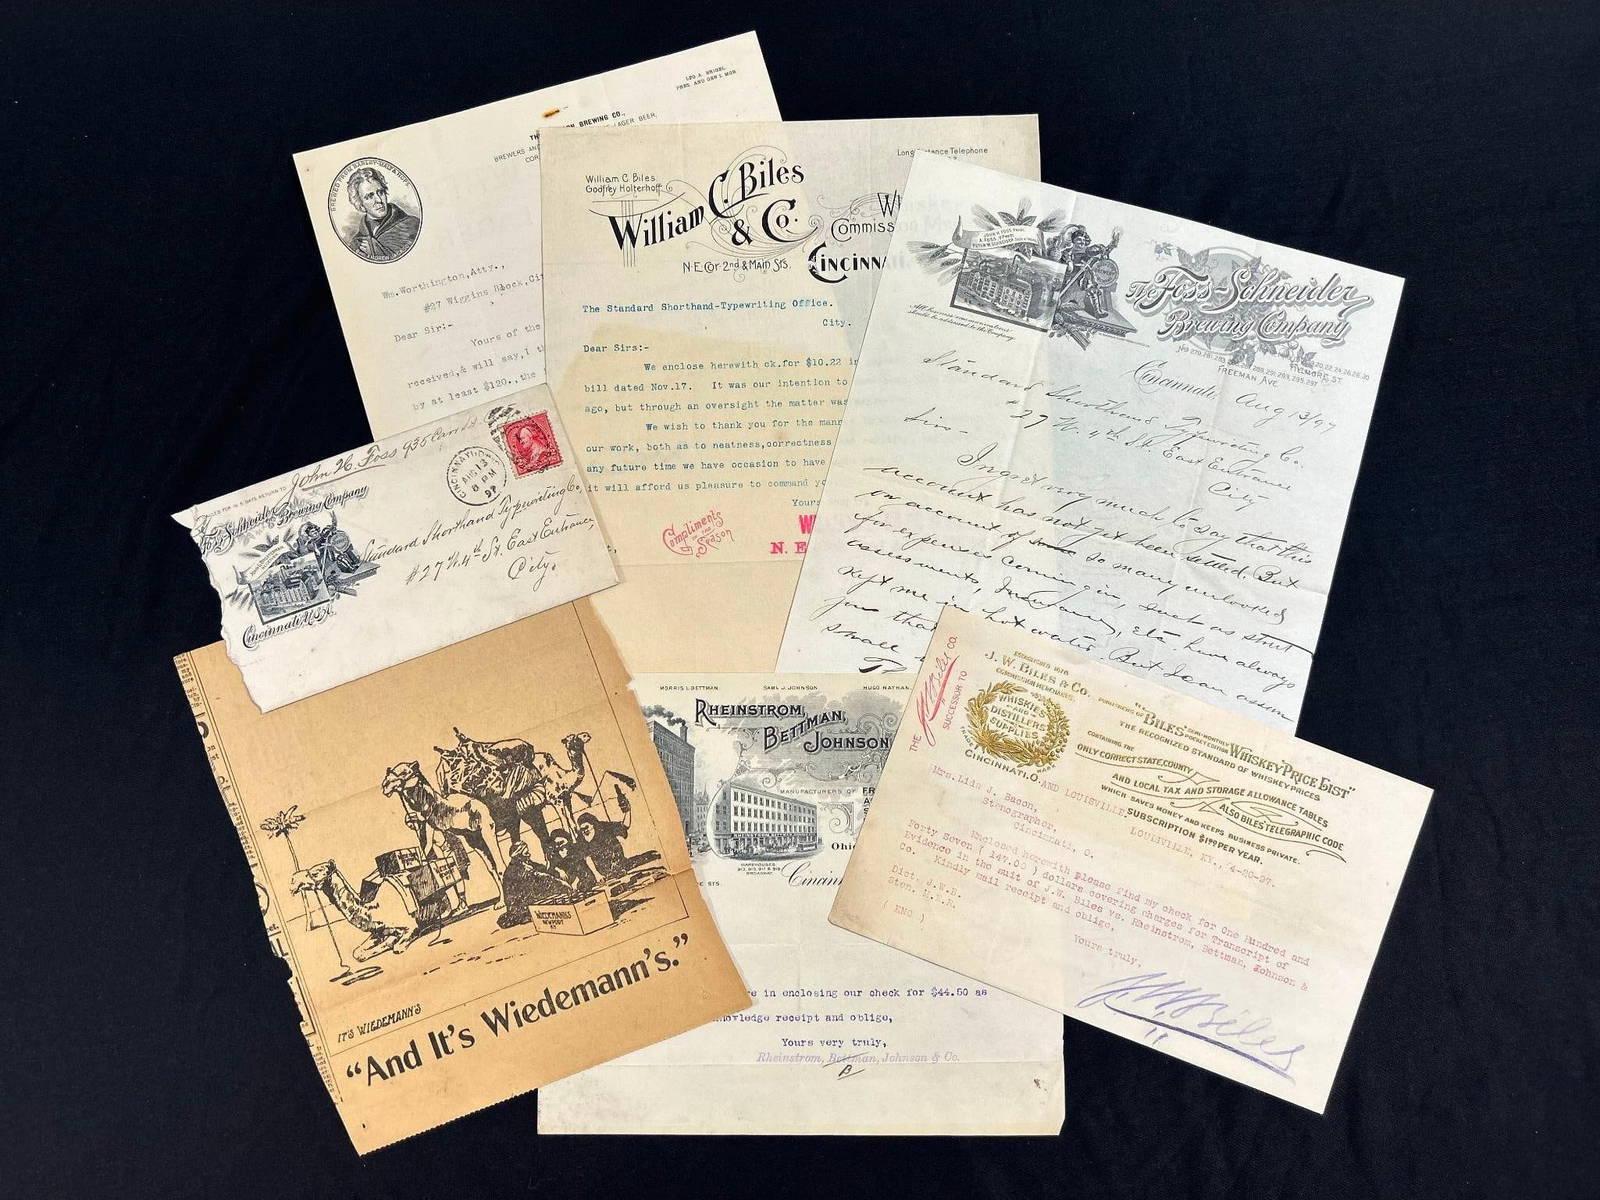 LEO A. BRIGEL,
PRES. AND GEN'L MGR
BREWING CO.,
LAGER BEER,
BREWERS AND
COR
BREWED FROM BARLEY-MALT & HOPS.
Wm. Worthington, Atty.,
#27 Wiggins Block, Cit
Dear Sir:-
Yours of the
received,& will say, I th
by at least $120., the
William C. Biles.
Godfrey Holterhoff.
Long Distance Telephone
William C. Biles
& Co.
N.E. Cor. 2nd & Main Sts.
Commiss
Cincinn
The Standard Shorthand-Typewriting Office.
City.
Dear Sirs:-
We enclose herewith ck.for $10.22 in
bill dated Nov.17. It was our intention to
ago, but through an oversight the matter was
We wish to thank you for the mann
our work, both as to neatness,correctness
any future time we have occasion to have
it will afford us pleasure to command yo
Yours
Compliments
of the
Season
W
N. E
JOHN H. FOSS PREST.
The Foss-Schneider
Brewing Company
FREEMAN AVE.
Cincinnati, Aug 13/97
Standard Shorthand Typewriting Co.
#27 W. 4th St. East Entrance
City
Sirs-
I regret very much to say that this
account has not yet been settled. But
on account of so many unlooked
for expenses coming in, such as street
assessments, Insurance, etc. have always
kept me in hot water. But I can assure
you that
small
John H. Foss 935
Foss-Schneider Brewing Company
Cincinnati, U.S.A.
CINCINNATI, OHIO
AUG 13
8 PM
97
Standard Shorthand Typewriting Co,
#27 W. 4th St. East Entrance,
City.
WIEDEMANN'S
NEWPORT
KY
IT'S WIEDEMANN'S
“And It's Wiedemann's.”
MORRIS L. BETTMAN.
SAML J. JOHNSON
HUGO NATHAN
Rheinstrom,
Bettman,
Johnson
MANUFACTURERS OF FR
WAREHOUSES
BROADWAY.
Ohio
Cincinn
re in enclosing our check for $44.50 as
nowledge receipt and oblige,
Yours very truly,
Rheinstrom, Bettman, Johnson & Co.
B
THE J. W. Biles CO.
SUCCESSOR TO
ESTABLISHED 1876
J. W. BILES & CO.
COMMISSION MERCHANTS
WHISKIES
AND
DISTILLERS
SUPPLIES
TRADE MARK
CINCINNATI, O. AND LOUISVILLE,
PUBLISHERS OF
"BILES' SEMI-MONTHLY POCKET EDITION WHISKEY PRICE LIST"
THE RECOGNIZED STANDARD OF WHISKEY PRICES
CONTAINING THE
ONLY CORRECT STATE, COUNTY
AND LOCAL TAX AND STORAGE ALLOWANCE TABLES
ALSO BILES' TELEGRAPHIC CODE
WHICH SAVES MONEY AND KEEPS BUSINESS PRIVATE.
SUBSCRIPTION $1.00 PER YEAR.
LOUISVILLE, KY., 4-20-97.
Mrs. Lida J. Bacon,
Stenographer,
Cincinnati, O.
Enclosed herewith please find my check for One Hundred and
Forty Seven ( 147.00 ) dollars covering charges for Transcript of
Evidence in the suit of J.W. Biles vs. Rheinstrom, Bettman, Johnson &
Co. Kindly mail receipt and oblige,
Yours truly,
Dict. J.W.B.
Sten. L.E.R.
( ENC )
J W Biles